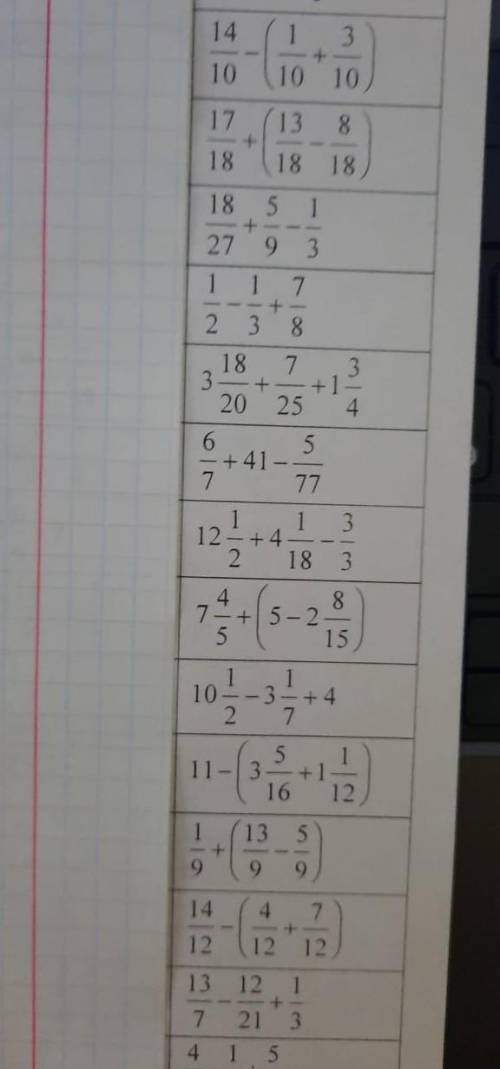 14/10 − (1/10 + 3/10)
17/18 + (13/18 − 8/18)
18/27 + 5/9 − 1/3
1/2 − 1/3 + 7/8
3 18/20 + 7/25 + 1 3/4
6/7 + 41 − 5/77
12 1/2 + 4 1/18 − 3/3
7 4/5 + (5 − 2 8/15)
10 1/2 − 3 1/7 + 4
11 − (3 5/16 + 1 1/12)
1/9 + (13/9 − 5/9)
14/12 − (4/12 + 7/12)
13/7 − 12/21 + 1/3
4 1 5